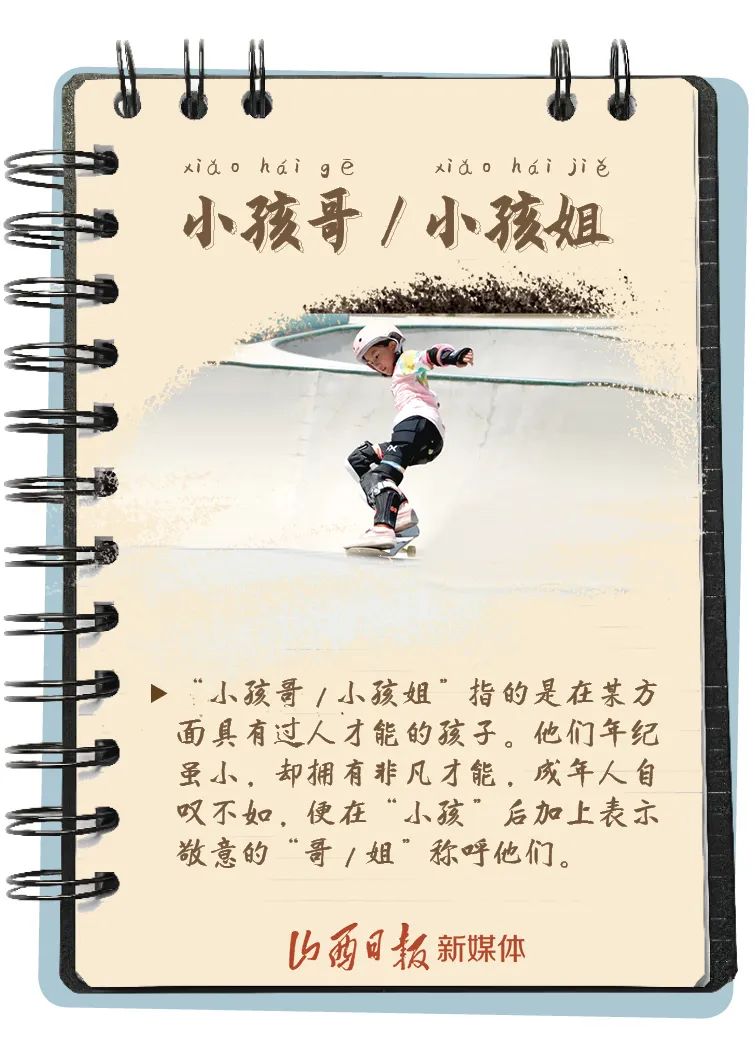 xiǎo hái gē xiǎo hái jiě
小孩哥/小孩姐
“小孩哥/小孩姐”指的是在某方
面具有过人才能的孩子。他们年纪
虽小，却拥有非凡才能，成年人自
叹不如，便在“小孩”后加上表示
敬意的“哥/姐”称呼他们。
山西日报新媒体